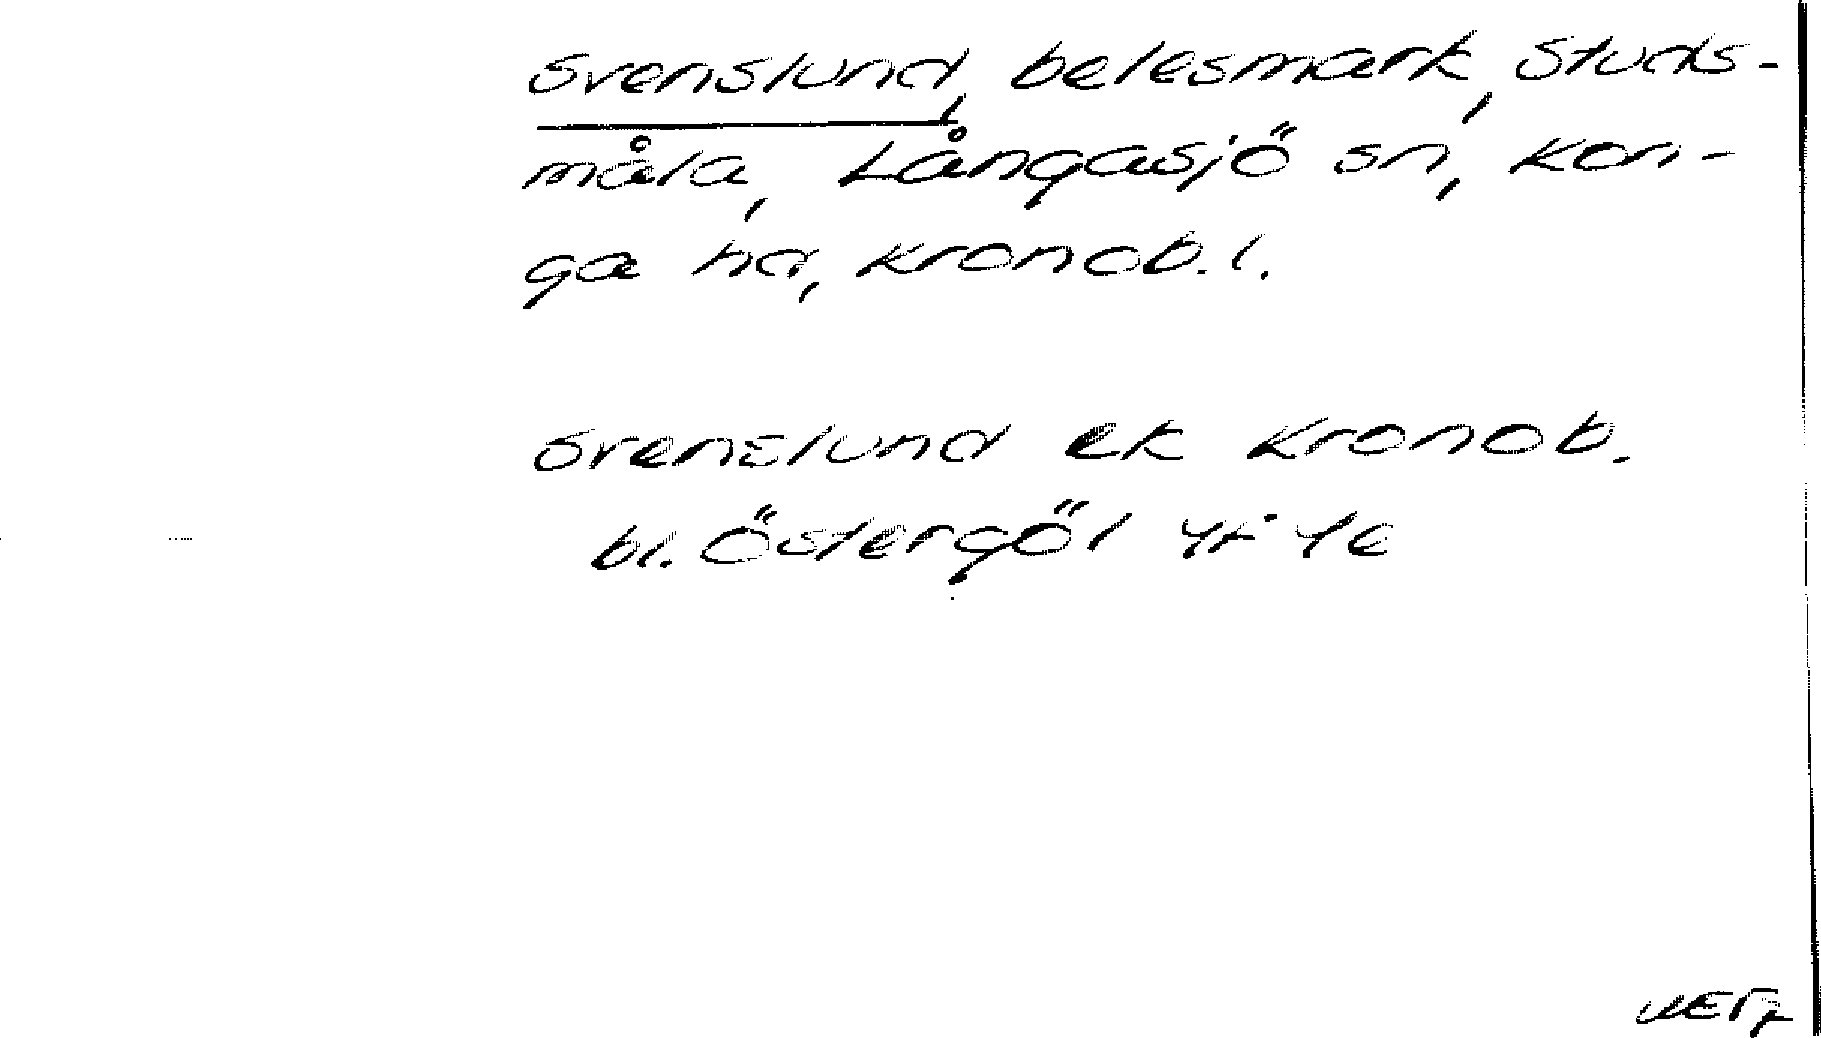 Svenslund, belesmark, Studs-
måla, Långasjö sn, Kon-
ga hd, Kronob. l.
Svenslund ek Kronob.
bl. Östergöl 4F 4e